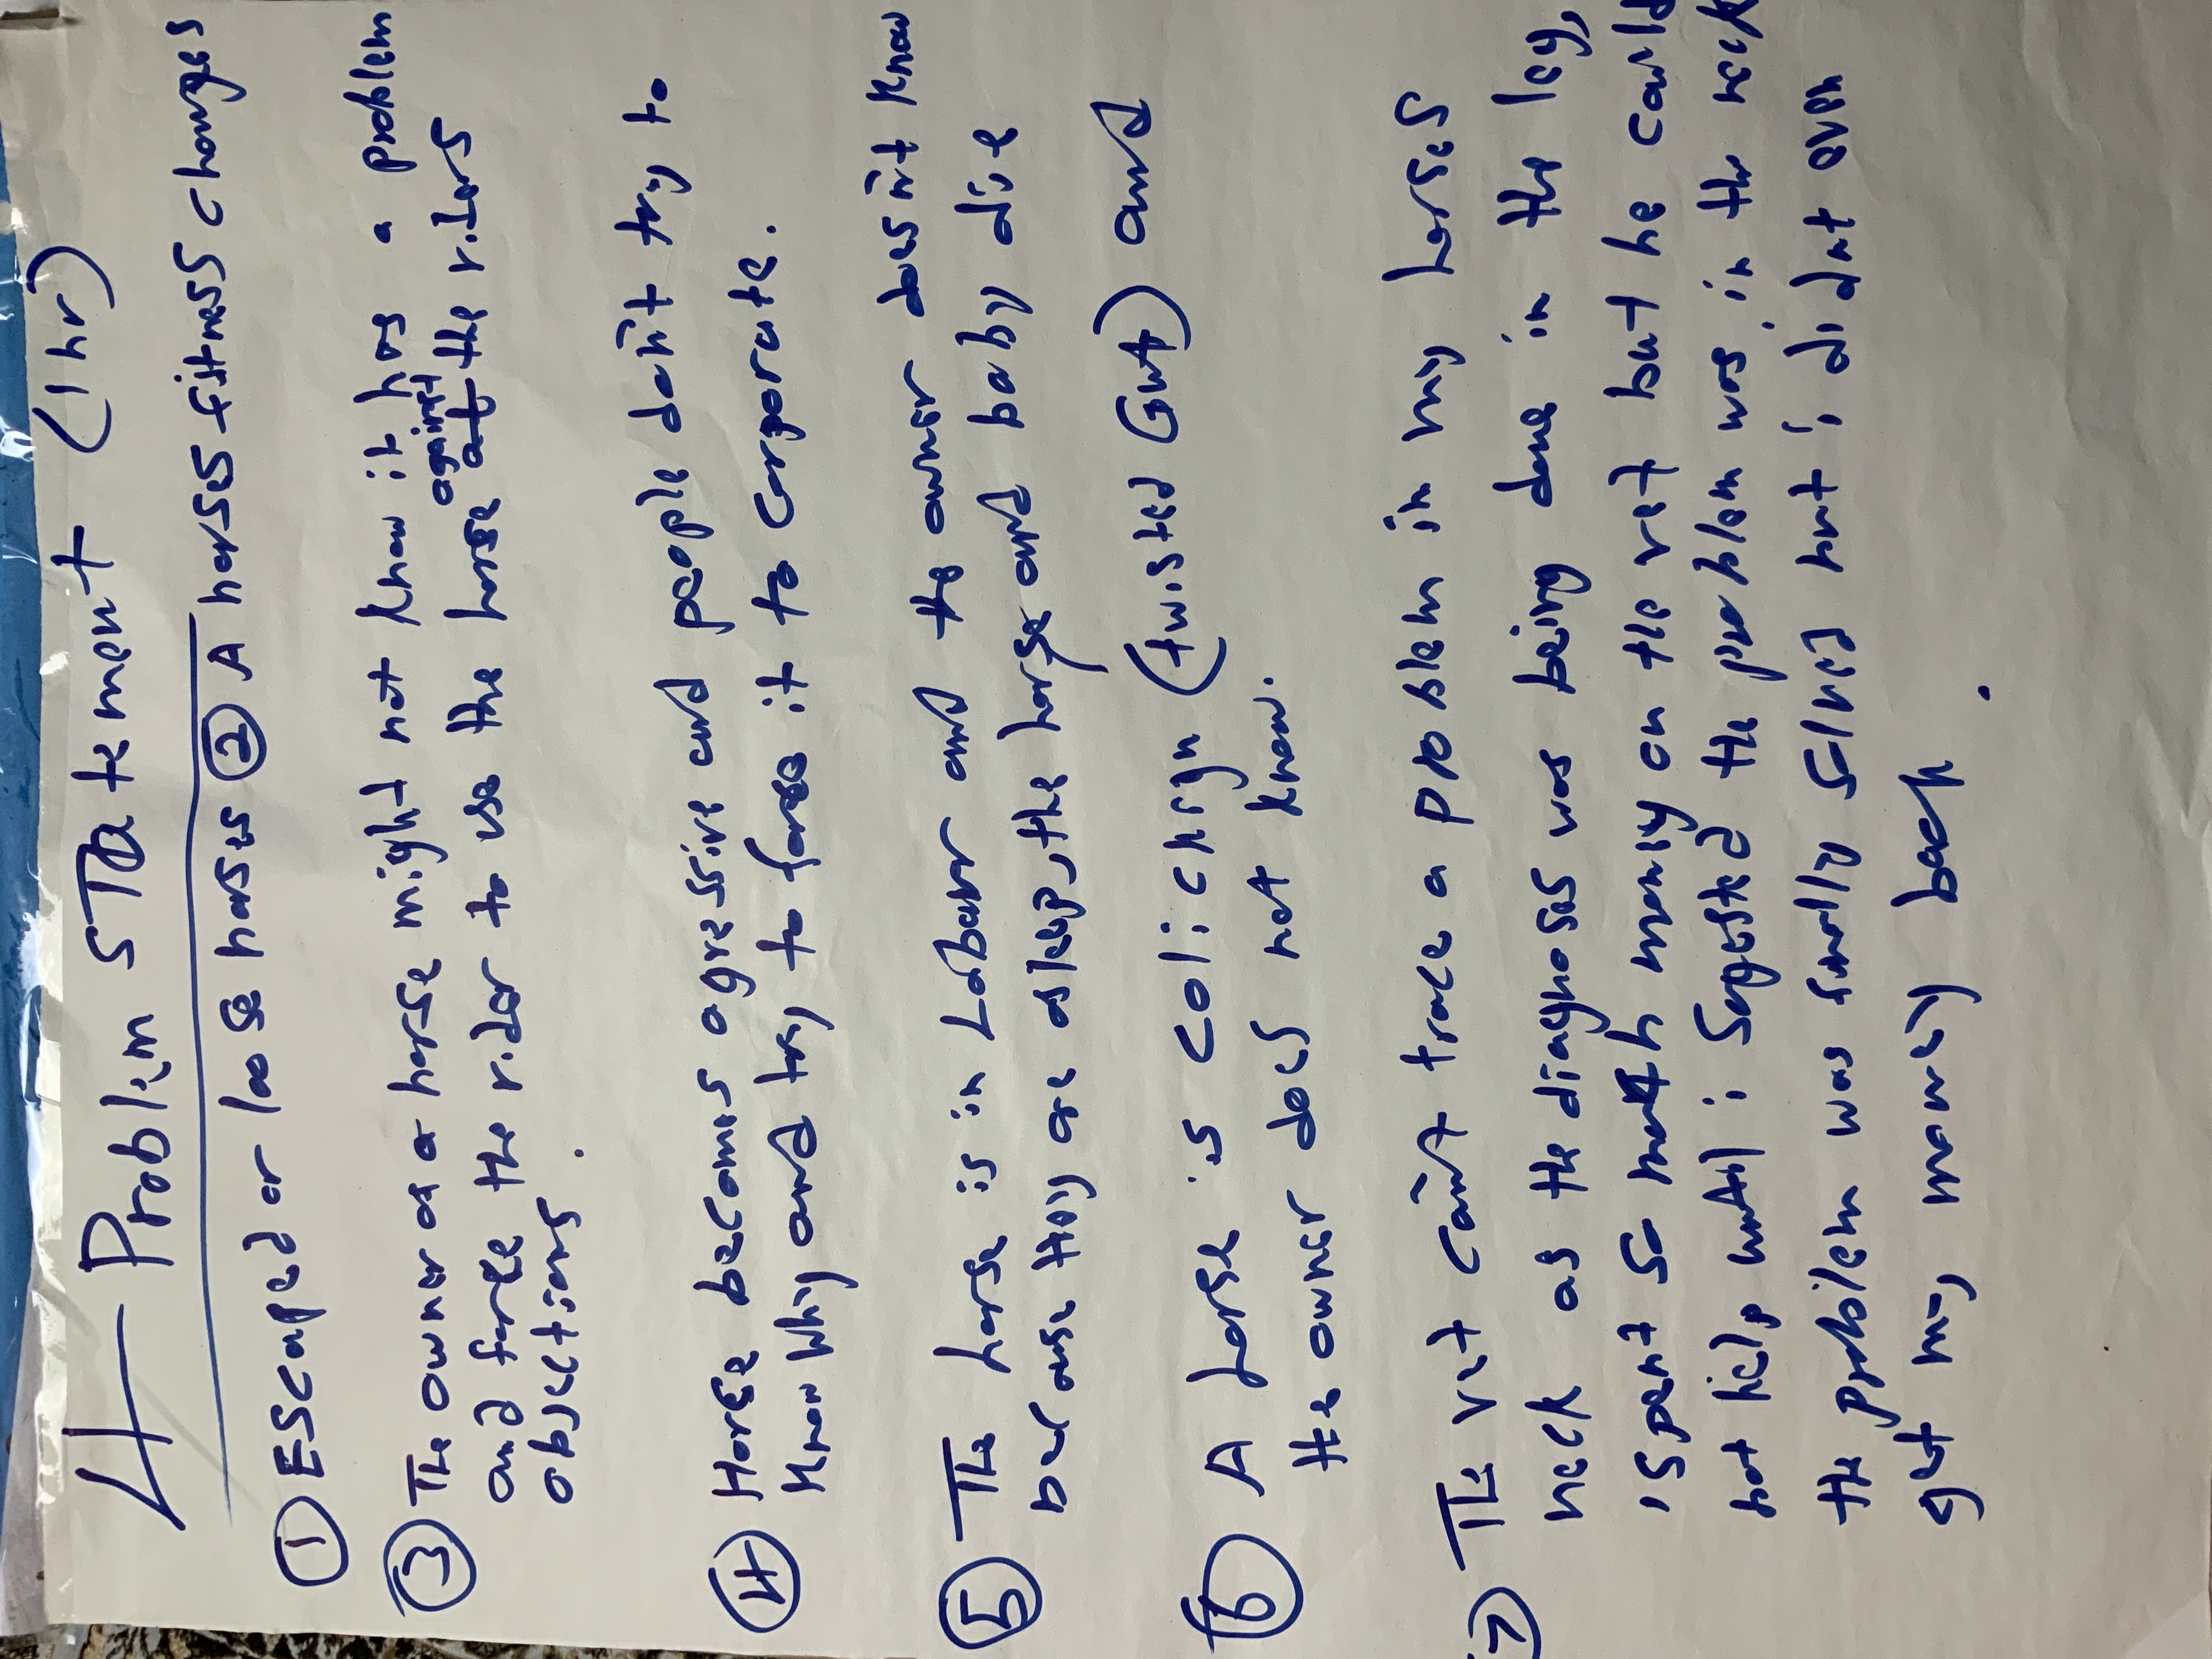 4 Problem STatement (1hr)
① Escaped or loose horses ② A horses fitness changes
③ The owner of a horse might not know it has a problem
and force the rider to use the horse at the riders
against
objections.
④ Horse becomes agressive and people don't try to
know why and try to force it to corporate.
⑤ The horse is in Labour and the owner doesn't know
because they are asleep, the horse and baby dise
⑥ A horse is colicking (twisted Gut) and
the owner does not know.
⑦ The vet can't trace a problem in my horses
neck as the diagnoses was being done in the leg,
i spent so much money on the vet but he could
not help until i Sugested the problem was in the neck
the problem was finally solved but i did not even
get my money back.